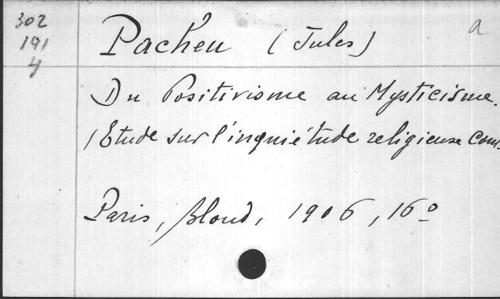 302
191
4
Pacheu (Jules)
a
Du Positivisme au Mysticisme.
(Etude sur l'inquiétude religieuse Cont.
Paris, Bloud, 1906, 16º